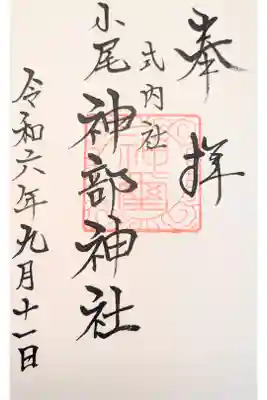 奉拝
式内社
小尾
神部神社
令和六年九月十一日